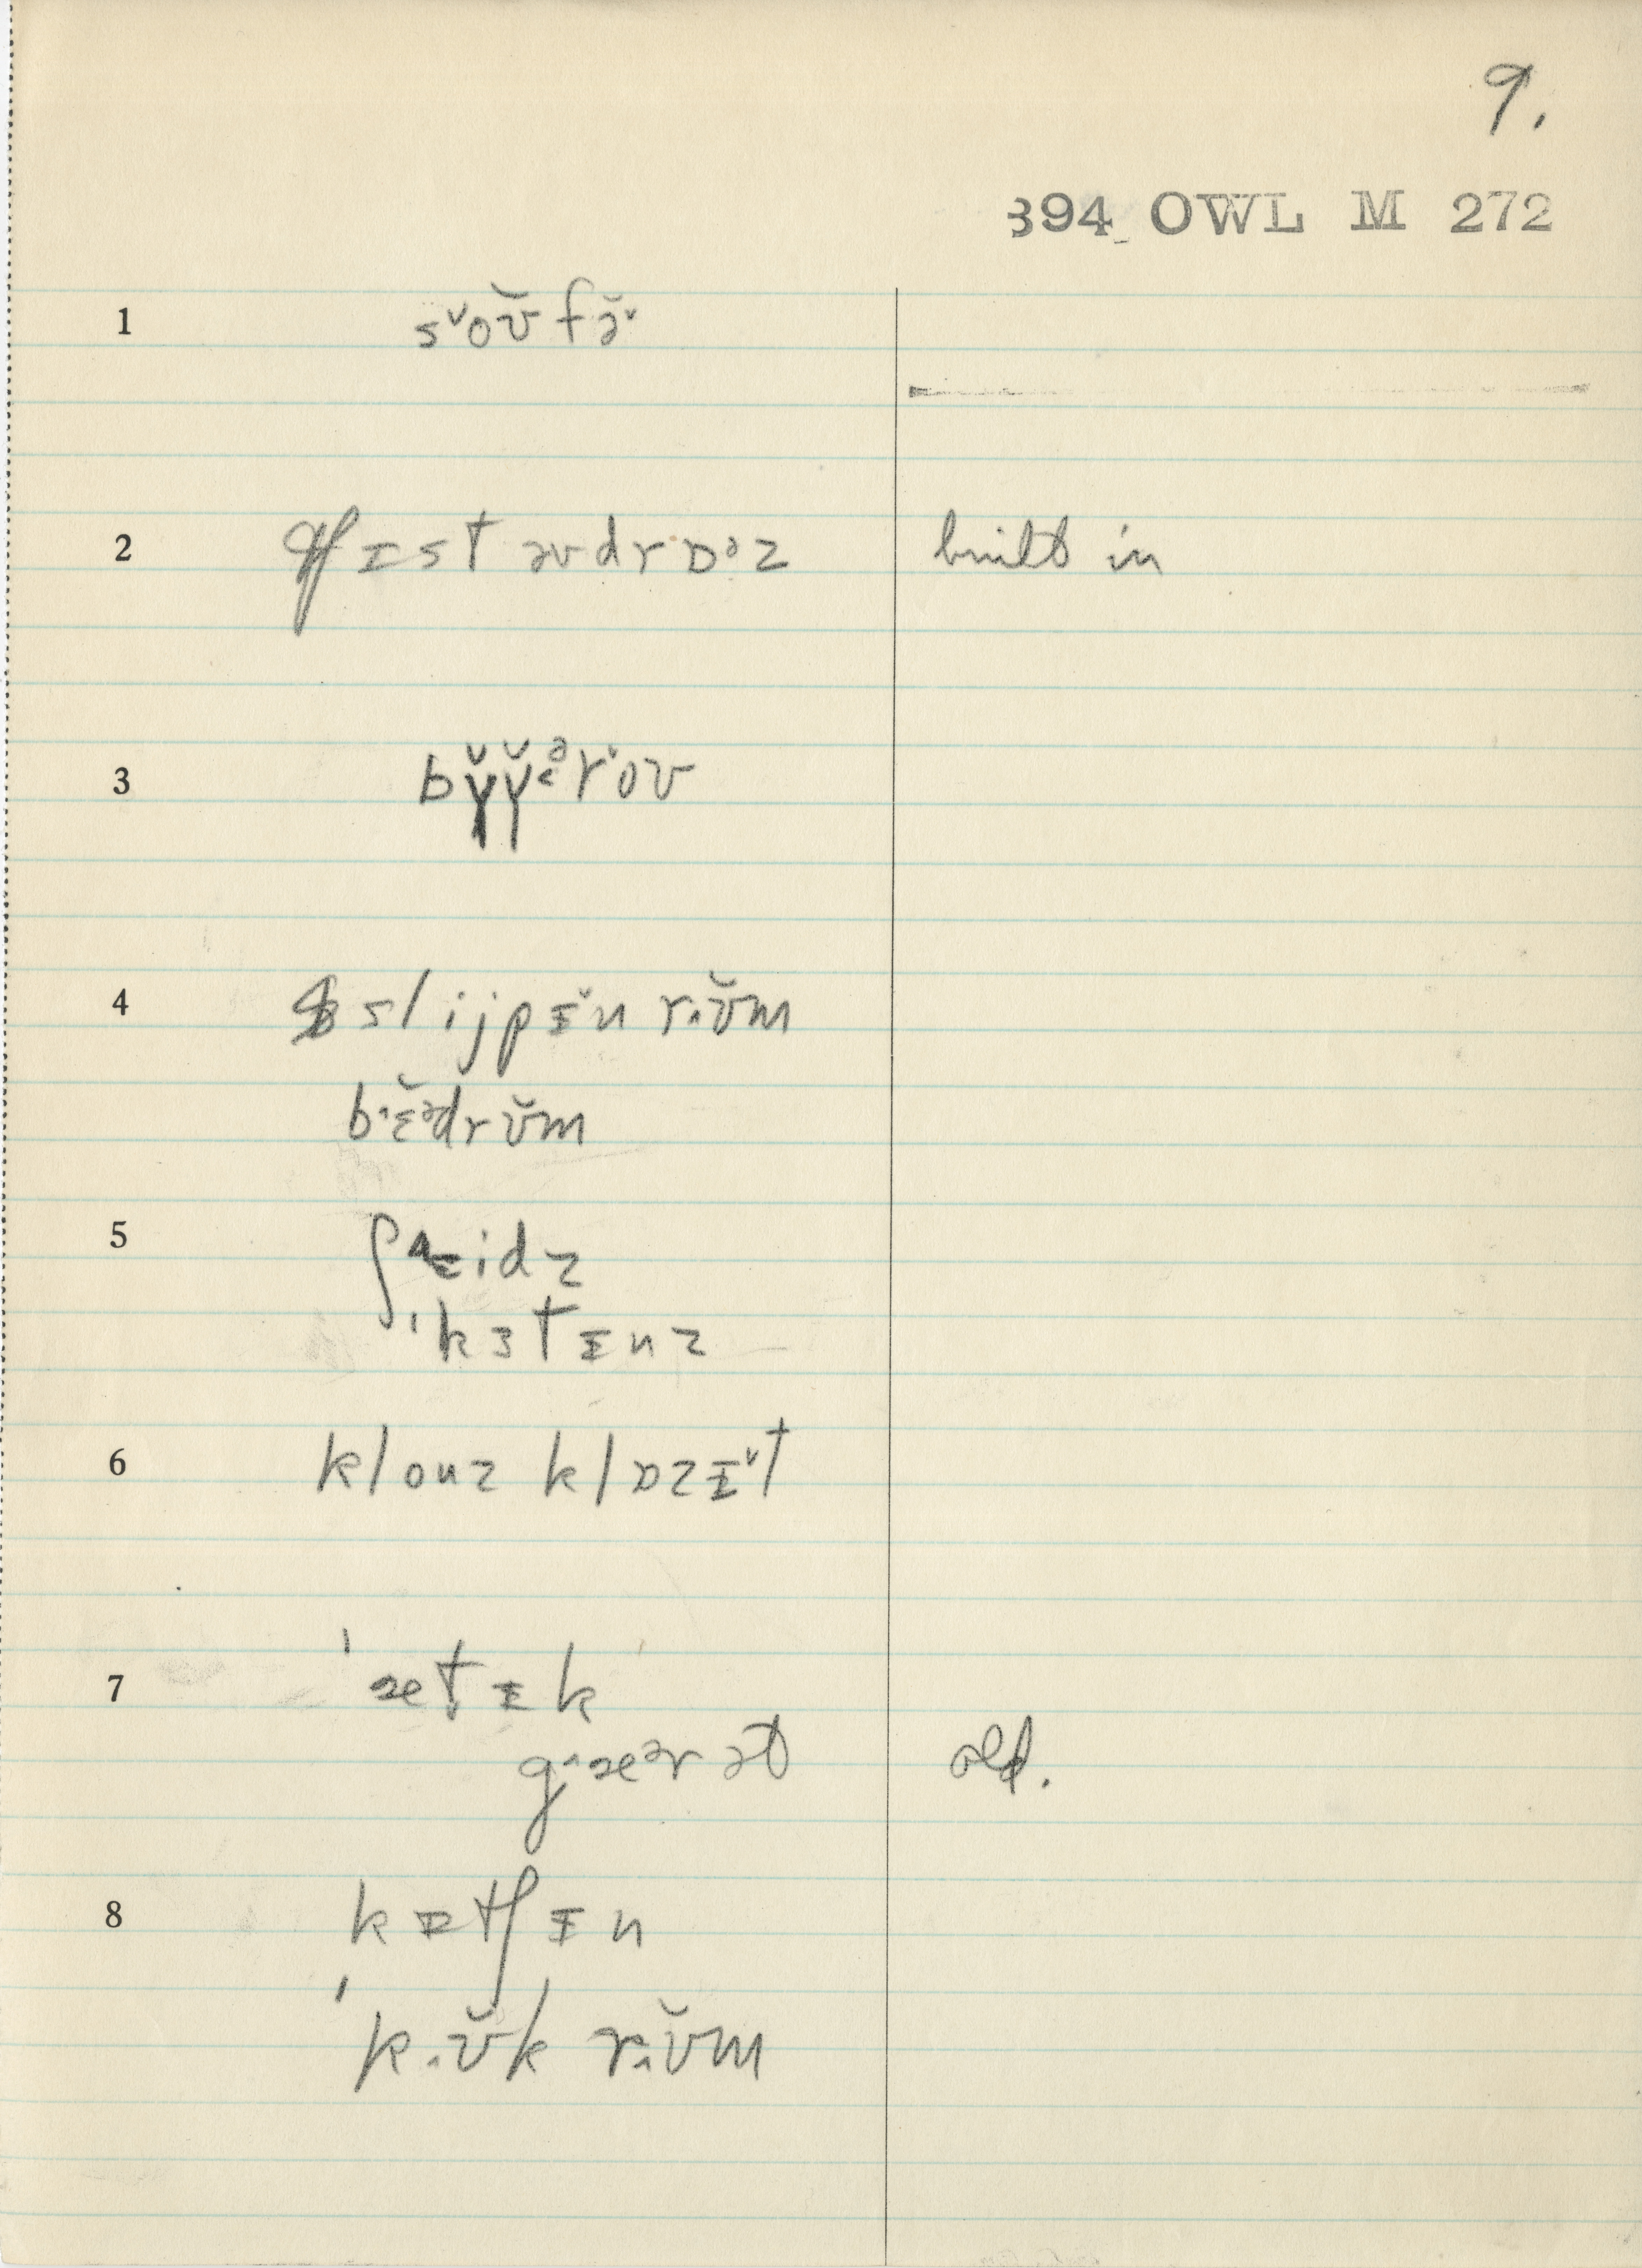 9.
394 OWL M 272
1 s˅oʊ̆fə̆˅
2 tʃɪst əv drɒᵊz built in
3 bɣ̆ɣ̆˂ᵊr˅oʊ
4 slijpɪ̆n r.ʊ̆m
b˄ɛ̆ᵊdrʊ̆m
5 ʃ˄ɛidz
ˈkɜtɪnz
6 klouz klɒzɪ˅t
7 ˈætɪk
g˄æᵊrət old.
8 kɪtʃɪn
ˈk.ʊ̆k r.ʊ̆m